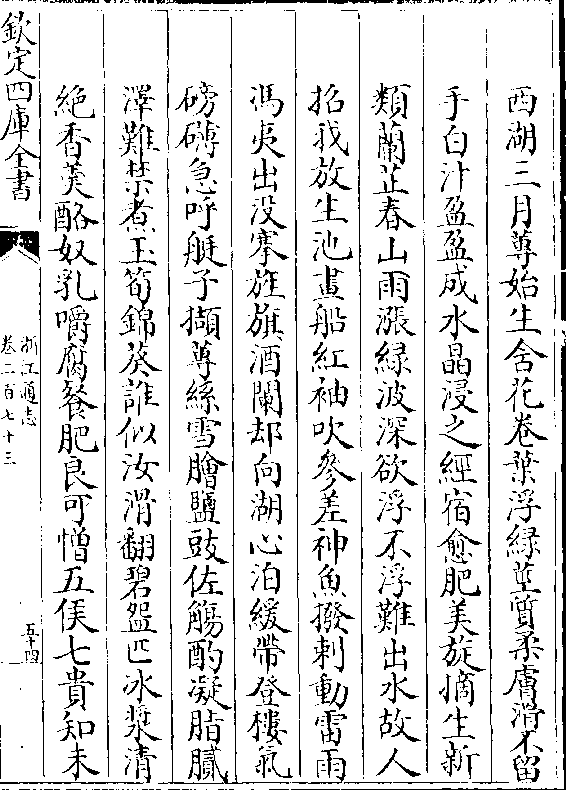 西湖三月蓴始生含花卷葉浮綠莖質柔膚滑不留
手白汁盈盈成水晶浸之經宿愈肥美旋摘生新
類蘭芷春山雨漲綠波深欲浮不浮難出水故人
招我放生池畫船紅袖吹參差神魚撥剌動雷雨
馮夷出没搴旌旗酒闌却向湖心泊緩帶登樓氣
磅礴急呼艇子擷蓴絲雪膾鹽豉佐觴酌凝脂膩
澤難禁煮玉筍錦葵誰似汝滑翻碧盌匹冰漿清
絶香羮酪奴乳嚼腐餐肥良可憎五侯七貴知未
欽定四庫全書
浙江通志
卷二百七十三
五十四